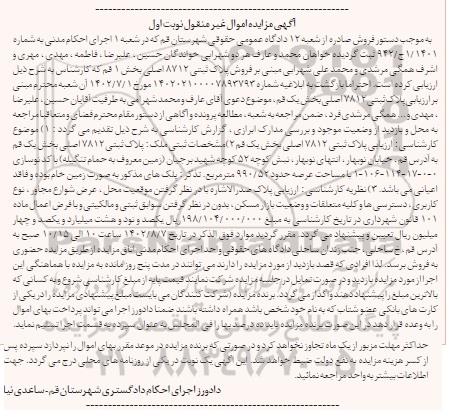 آگهی مزایده اموال غیر منقول نوبت اول
به موجب دستور فروش صادره از شعبه ۱۲ دادگاه عمومی حقوقی شهرستان قم که در شعبه ۱ اجرای احکام مدنی به شماره
۱/۱۴۰۱ج/۹۴۲ ثبت گردیده خواهان محمد و عارف هر دو شهرابی خواندگان حسین، علیرضا، فاطمه، مهدی، مهری و
اشرف همگی مرشدی و محمد علی شهرابی مبنی بر فروش پلاک ثبتی ۸۷۱۲ اصلی بخش ۱ قم که کارشناس به شرح ذیل
ارزیابی کرده است. احتراما بازگشت به ابلاغیه شماره ۱۴۰۲۰۲۱۰۰۰۰۷۸۹۳۷۹۳ مورخ ۱۴۰۲/۷/۱ آن شعبه محترم مبنی
بر ارزیابی پلاک ثبتی ۷۸۱۲ اصلی بخش یک قم، موضوع دعوی آقای عارف و محمد شهرامی به طرفیت آقایان حسین، علیرضا
، مهدی و ... همگی مرشدی فرد، ضمن مراجعه به شعبه، مطالعه پرونده و آگاهی از دستور مقام محترم قضای و متعاقبا مراجعه
به محل و بازدید از وضعیت موجود و بررسی مدارک ابرازی، گزارش کارشناسی به شرح ذیل تقدیم می گردد: ۱) موضوع
کارشناسی: ارزیابی پلاک ثبتی ۷۸۱۲ اصلی بخش یک قم ۲) مشخصات ثبتی ملک: پلاک ثبتی ۷۸۱۲ اصلی بخش یک قم
به آدرس قم، خیابان نوبهار، انتهای نوبهار، نبش کوچه ۵۲ کوچه شهید برجیان (زمین معروف به حمام تنگیله) با کد نوسازی
۱-۱۰۶-۱۱۴-۱۷-۰-۰-۰ با مساحت عرصه حدود ۹۹۰/۵۲ مترمربع. تذکر: پلک های مذکور به صورت زمین خام بوده و فاقد
اعیانی می باشد. ۳) نظریه کارشناسی: ارزیابی پلاک صدرالاشاره با در نظر گرفتن موقعیت محل، عرض شوارع مجاور، نوع
کاربری، دسترسی ها و کلیه متعلقات و وضعیت بازار مسکن، بدون در نظر گرفتن سوابق ثبتی و مالکیتی و با فرض اعمال ماده
۱۰۱ قانون شهرداری در تاریخ کارشناسی به مبلغ ۱۹۸/۱۰۴/۰۰۰/۰۰۰ ریال یکصد و نود و هشت میلیارد و یکصد و چهار
میلیون ریال تعیین و پیشنهاد می گردد. مقرر گردید موارد فوق الذکر در تاریخ ۱۴۰۲/۸/۷ ساعت ۱۰ الی ۱۰/۱۵ صبح به
آدرس قم - خ ساحلی - جنب زندان ساحلی دادگاه های حقوقی واحد اجرای احکام مدنی اتاق مزایده از طریق مزایده حضوری
به فروش برسد، لذا افرادی که قصد بازدید از مورد مزایده را دارند می توانند در مدت پنج روز مانده به مزایده با هماهنگی این
اجرا از مورد مزایده بازدید و در صورت تمایل در جلسه مزایده شرکت نمایند قیمت پایه از مبلغ کارشناسی شروع و به کسانی که
بالاترین مبلغ را پیشنهاد دهند واگذار می گردد. برنده مزایده (شرکت کنندگان می بایست مبلغ پیشنهادی مزایده را در یکی از
کارت های بانکی عضو شتاب که به نام خود شخص باشد همراه داشته باشند ضمنا دادورز اجرا می تواند پرداخت بهای اموال
را به وعده قرار دهد در این صورت برنده مزایده باید ده درصد بها را فی المجلس به عنوان سپرده به قسمت اجرا تسلیم نماید.
حداکثر مهلت مزبور از یک ماه تجاوز نخواهد کرد و در صورتی که برنده مزایده در موعد مقرر بهای اموال را نپردازد سپرده پس
از کسر هزینه مزایده به نفع دولت ضبط خواهد شد. این آگهی یک نوبت در یکی از روزنامه های محلی درج می گردد. جهت
اطلاعات بیشتر به واحد مراجعه نمائید.
دادورز اجرای احکام دادگستری شهرستان قم- ساعدی نیا